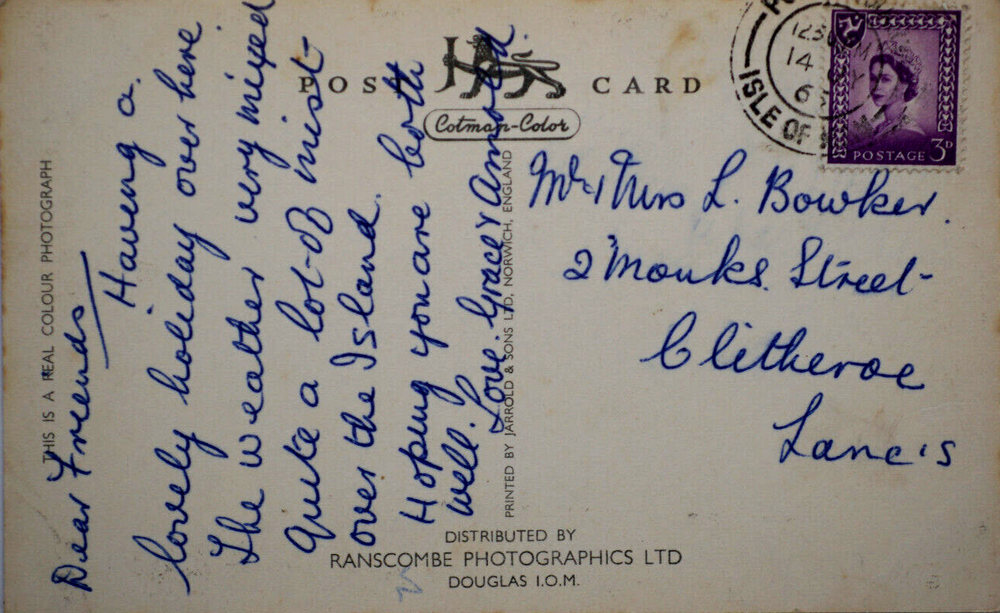 POST CARD
Cotman-Color
THIS IS A REAL COLOUR PHOTOGRAPH
Dear Friends
Having a
lovely holiday over here
The weather very mixed
Quite a lot of mist
over the Island.
Hoping you are both
well.
Love. Grace & Arnold.
PRINTED BY JARROLD & SONS LTD, NORWICH, ENGLAND
1230 PM
14
ISLE OF
POSTAGE 3D
Mr & Mrs L. Bowker.
2 Monks. Street
Clitheroe
Lancs
DISTRIBUTED BY
RANSCOMBE PHOTOGRAPHICS LTD
DOUGLAS I.O.M.